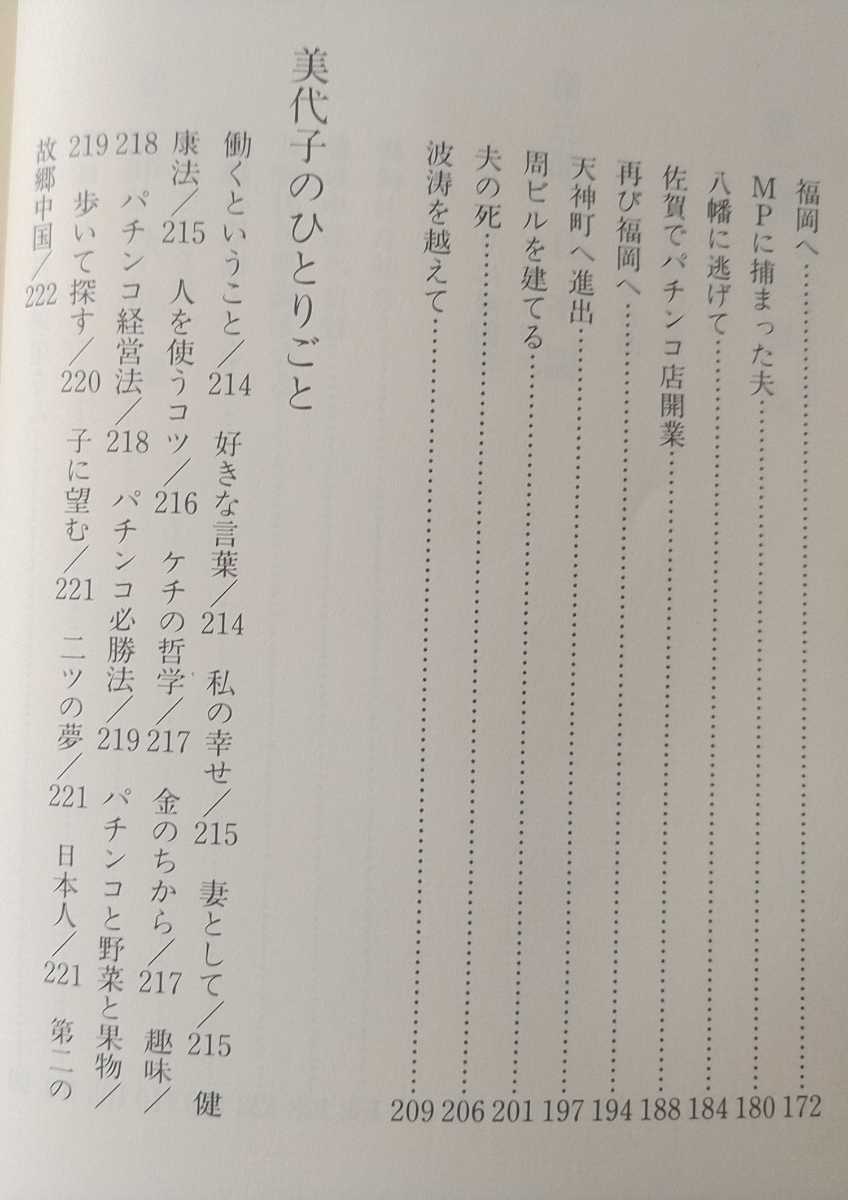 福岡へ……………………172
MPに捕まった夫……………………180
八幡に逃げて……………………184
佐賀でパチンコ店開業……………………188
再び福岡へ……………………194
天神町へ進出……………………197
周ビルを建てる……………………201
夫の死……………………206
波涛を越えて……………………209
美代子のひとりごと
働くということ／214　好きな言葉／214　私の幸せ／215　妻として／215　健
康法／215　人を使うコツ／216　ケチの哲学／217　金のちから／217　趣味／
218　パチンコ経営法／218　パチンコ必勝法／219　パチンコと野菜と果物／
219　歩いて探す／220　子に望む／221　二ツの夢／221　日本人／221　第二の
故郷中国／222